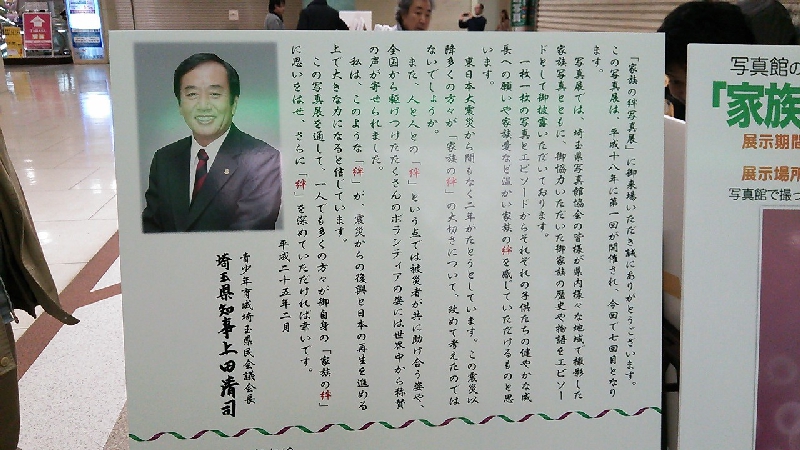 「家族の絆写真展」に御来場いただき誠にありがとうございます。
この写真展は、平成十八年に第一回が開催され、今回で七回目となり
ます。
写真展では、埼玉県写真館協会の皆様が県内様々な地域で撮影した
家族写真とともに、御協力いただいた御家族の歴史や物語をエピソー
ドとして御披露いただいております。
一枚一枚の写真とエピソードからそれぞれの子供たちの健やかな成
長への願いや家族愛など温かい家族の絆を感じていただけるものと思
います。
東日本大震災から間もなく二年がたとうとしています。この震災以
降多くの方々が「家族の絆」の大切さについて、改めて考えたのでは
ないでしょうか。
また、人と人との「絆」という点では被災者が共に助け合う姿や、
全国から駆けつけたたくさんのボランティアの姿には世界中から称賛
の声が寄せられました。
私は、このような「絆」が、震災からの復興と日本の再生を進める
上で大きな力になると信じています。
この写真展を通して、一人でも多くの方々が御自身の「家族の絆」
に思いをはせ、さらに「絆」を深めていただければ幸いです。
平成二十五年二月
青少年育成埼玉県民会議会長
埼玉県知事上田清司
写真館の
「家族
展示期間
展示場所
写真館で撮っ